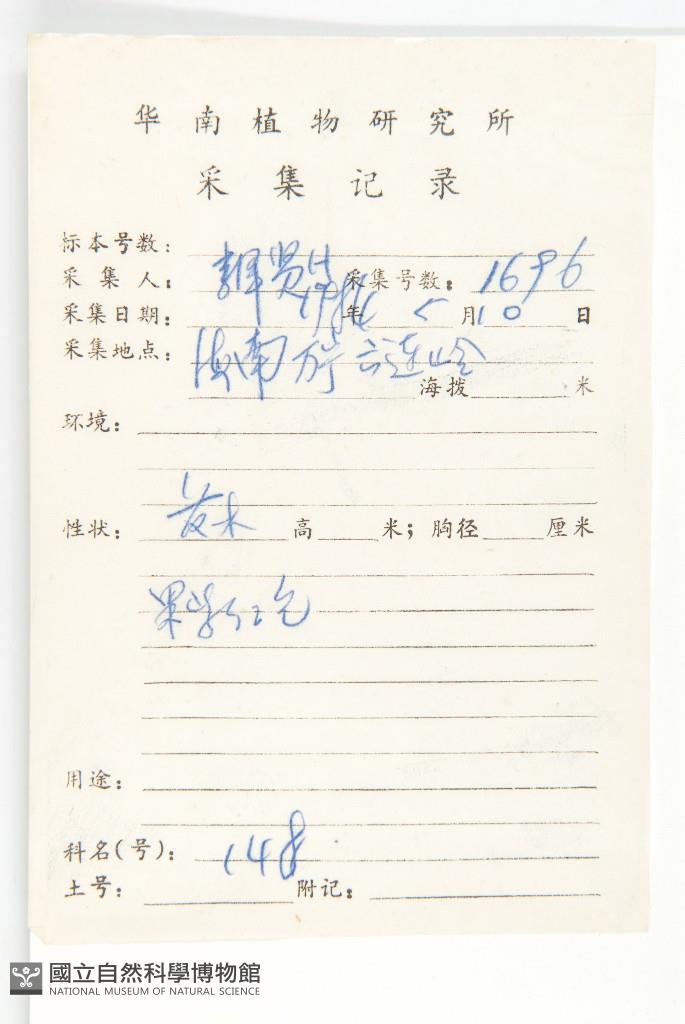 华南植物研究所
采集记录
标本号数：
采集人： 采集号数：1696
采集日期： 年 5 月 10 日
采集地点：海南万宁六连岭
海拨 米
环境：
性状： 高 米；胸径 厘米
果紫红色
用途：
科名(号)：148
土号： 附记：
國立自然科學博物館
NATIONAL MUSEUM OF NATURAL SCIENCE